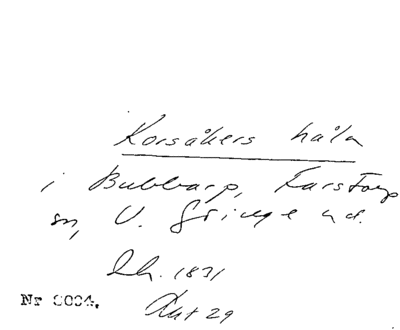 Korsåkers håla
i Bubbarp, Farstorps
sn, V. Göinge hd.
Lh. 1831
Nr 0004. Lut 29